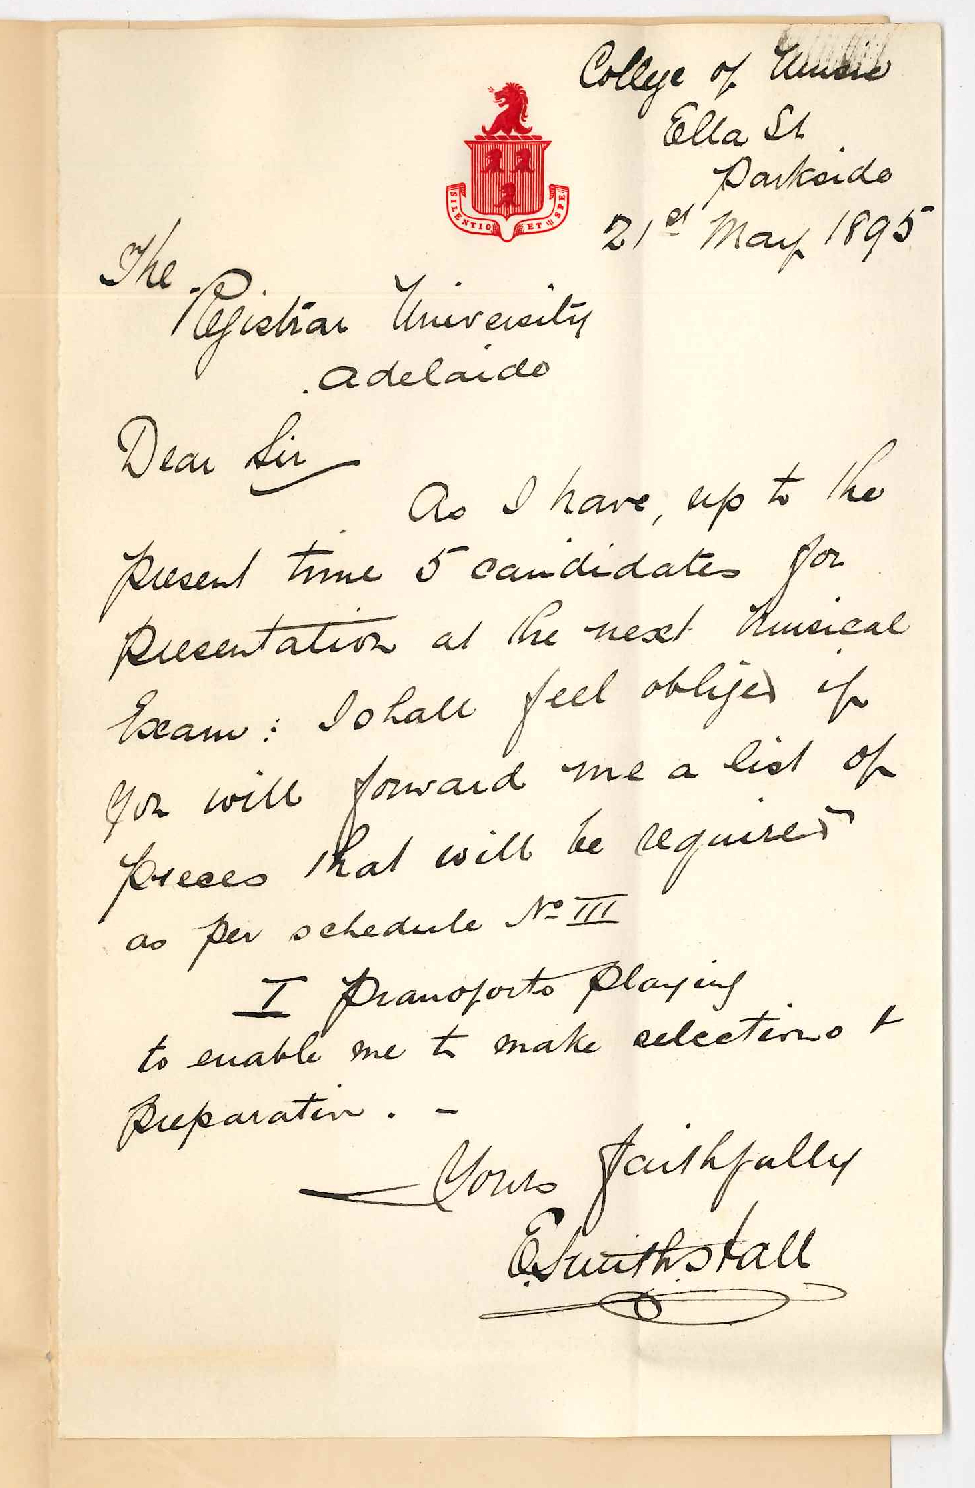 College of Music
Ella St
Parkside
21st May 1895
SILENTIO ET SPE
The
Registrar University
Adelaide
Dear Sir
As I have, up to the
present time 5 candidates for
presentation at the next Musical
Exam: I shall feel obliged if
you will forward me a list of
pieces that will be required
as per schedule No III
I Pianoforte Playing
to enable me to make selections &
preparation. -
Yours faithfully
E. Smith Hall